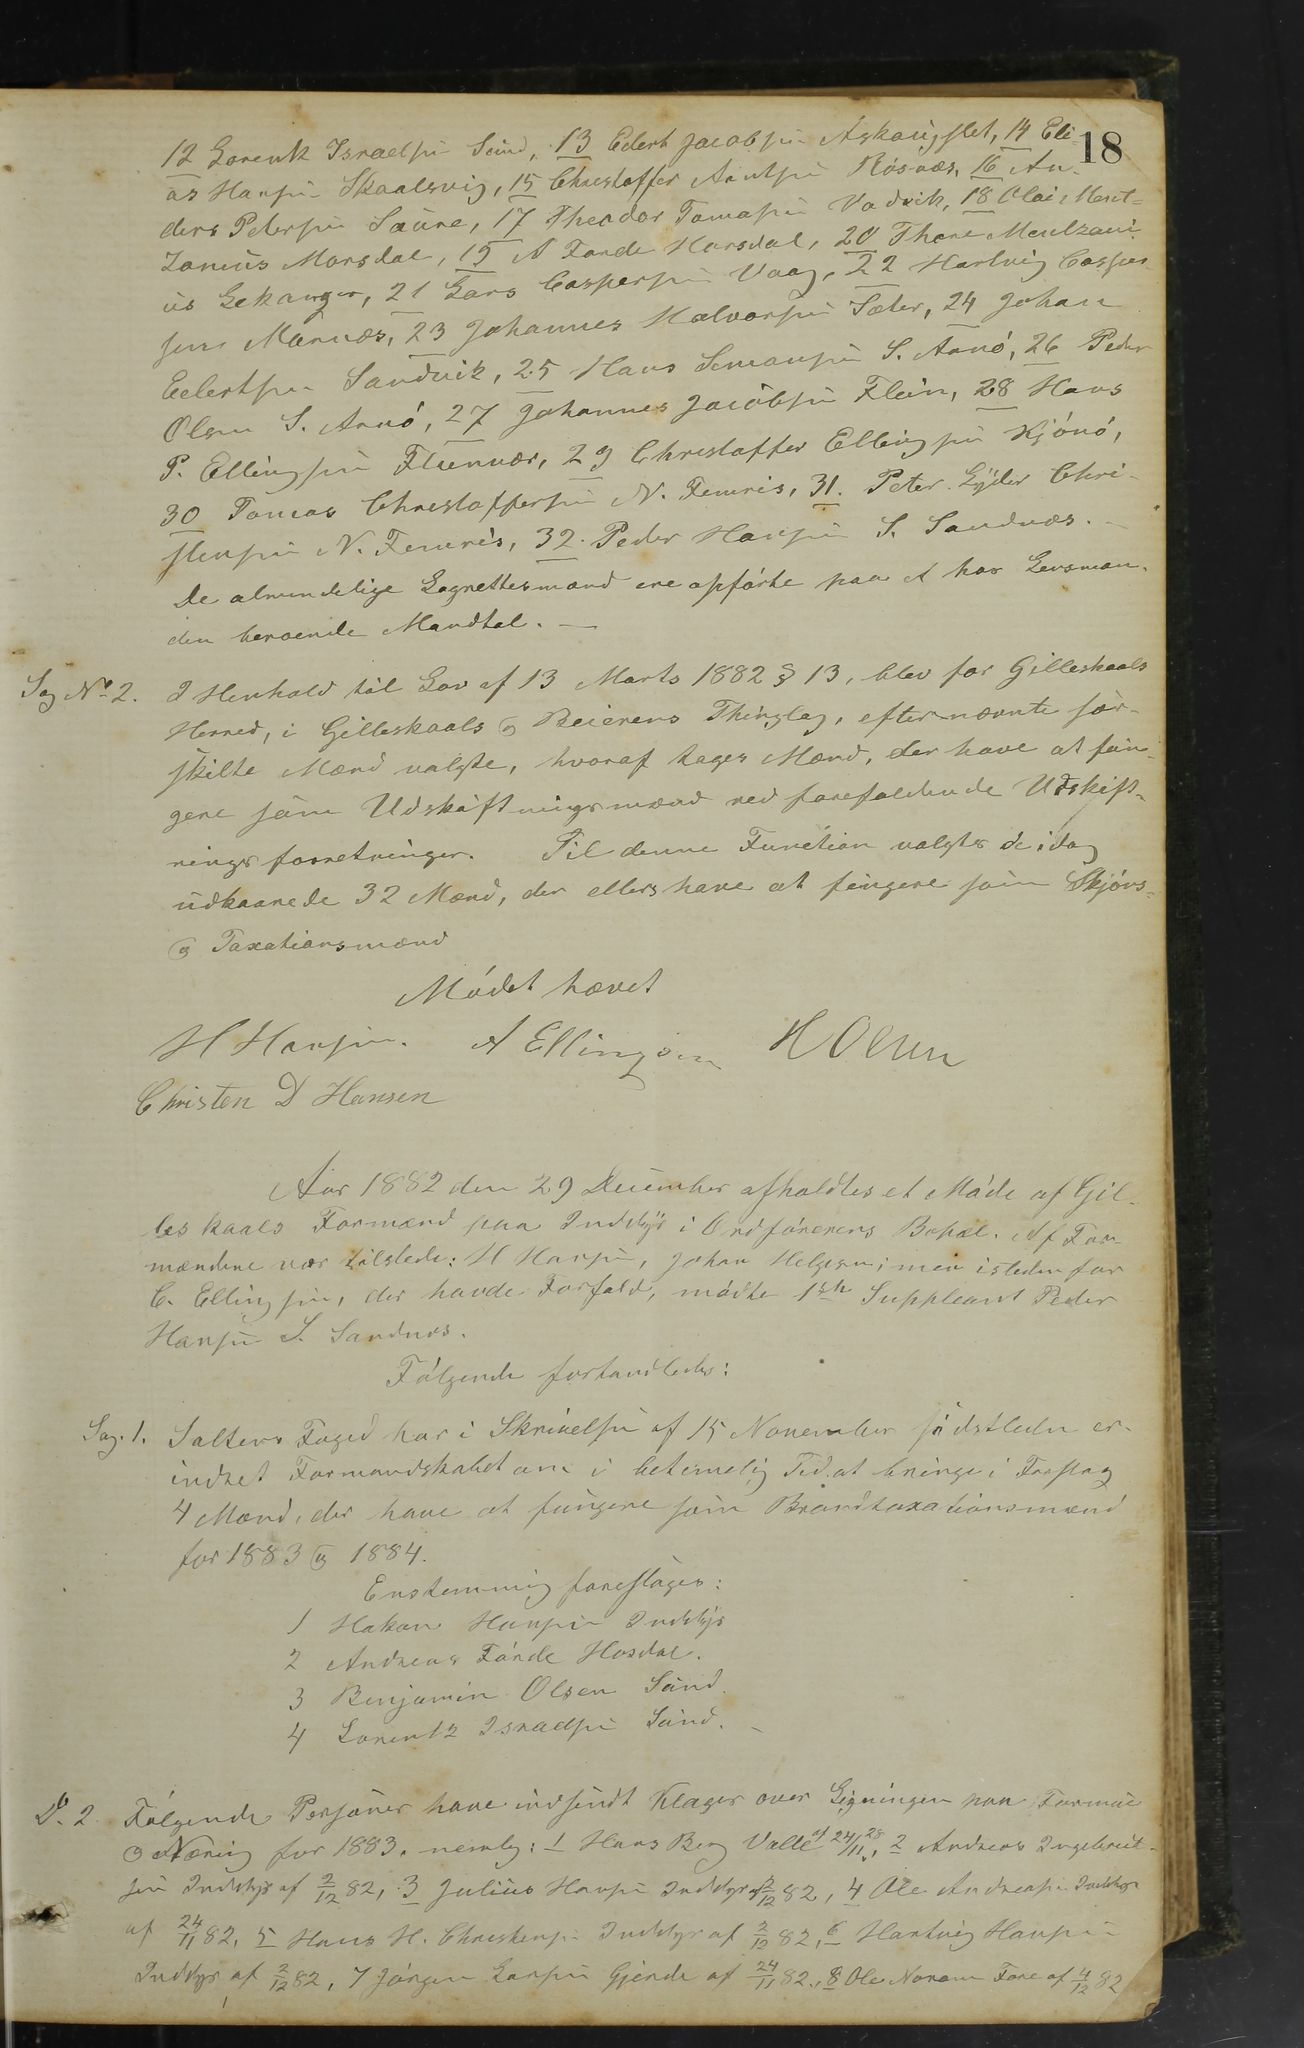 18
12 Lorentz Israelsen Sund, 13 Edert Jacobsen Askougslet, 14 Eli-
as Hansen Skaalsvig, 15 Christoffer Arntsen Rósnæs, 16 An-
ders Petersen Saúre, 17 Theodor Tomasen Vadvik, 18 Olai Ment-
zonius Morsdal, 19 A Forde Horsdal, 20 Thore Mentzoni-
us Lekanger, 21 Lars Caspersen Vaag, 22 Hartvig Casper-
sen Mårnæs, 23 Johannes Halvorsen Sæter, 24 Johan
Edertsen Sandvik, 25 Hans Simonsen S. Arnó, 26 Peder
Olsen S. Arnó, 27 Johannes Jacobsen Flein, 28 Hans
P. Ellingsen Fleinvær, 29 Christoffer Ellingsen Kjónó,
30 Tomas Christoffersen N. Femris, 31. Peter Lyder Chri-
stensen N. Femris, 32. Peder Hansen S. Sandnæs. -
De almindelige Lagrettesmænd ere opfórte paa et hos Lensman-
den beroende Mandtal. —
Sag No 2. I Henhold til Lov af 13 Marts 1882 § 13, blev for Gilleskaals
Herred, i Gilleskaals og Beierens Thinglag, efternævnte sær-
skilte Mænd valgte, hvoraf tages Mænd, der have at fun-
gere som Udskiftningsmænd ved forefaldende Udskift-
nings forretninger. Til denne Function valgtes de idag
udkaarede 32 Mænd, der ellers have at fungere som Skjóns-
og Taxationsmænd
Módet hævet
H Hansen. A Ellingsen H Olsen
Christen D Hansen
Aar 1882 den 29 December afholdtes et Móde af Gil-
leskaals Formænd paa Inddyr i Ordfórerens Bopæl. Af For-
mændene var tilstede: H Hansen, Johan Helgesen; men istedenfor
C. Ellingsen, der havde Forfald, módte 1ste Suppleant Peder
Hansen S. Sandnæs.
Fólgende forhandledes:
Sag. 1. Saltens Foged har i Skrivelse af 15 November sidstleden er-
indret Formandskabet om i betimelig Tid at bringe i Forslag
4 Mænd, der have at fungere som Brandtaxationsmænd
for 1883 og 1884.
Enstemmig foresloges:
1 Hakon Hansen Inddyr
2 Andreas Fórde Hosdal.
3 Benjamin Olsen Sund.
4 Lorentz Israelsen Sund. -
Do. 2 Fólgende Personer have indsendt Klager over Ligningen paa Formue
og Næring for 1883. nemlig: 1 Hans Berg Valle af 24/11 , 2 Andreas Ingebrigt-
sen Inddyr af 2/12 82, 3 Julius Hansen Inddyr af 2/12 82, 4 Ole Andreasen Inddyr
af 24/11 82, 5 Hans H. Christensen Inddyr af 2/12 82, 6 Hartvig Hansen
Inddyr af 2/12 82, 7 Jórgen Larsen Gjerde af 24/11 82, 8 Ole Fore af 4/12 82